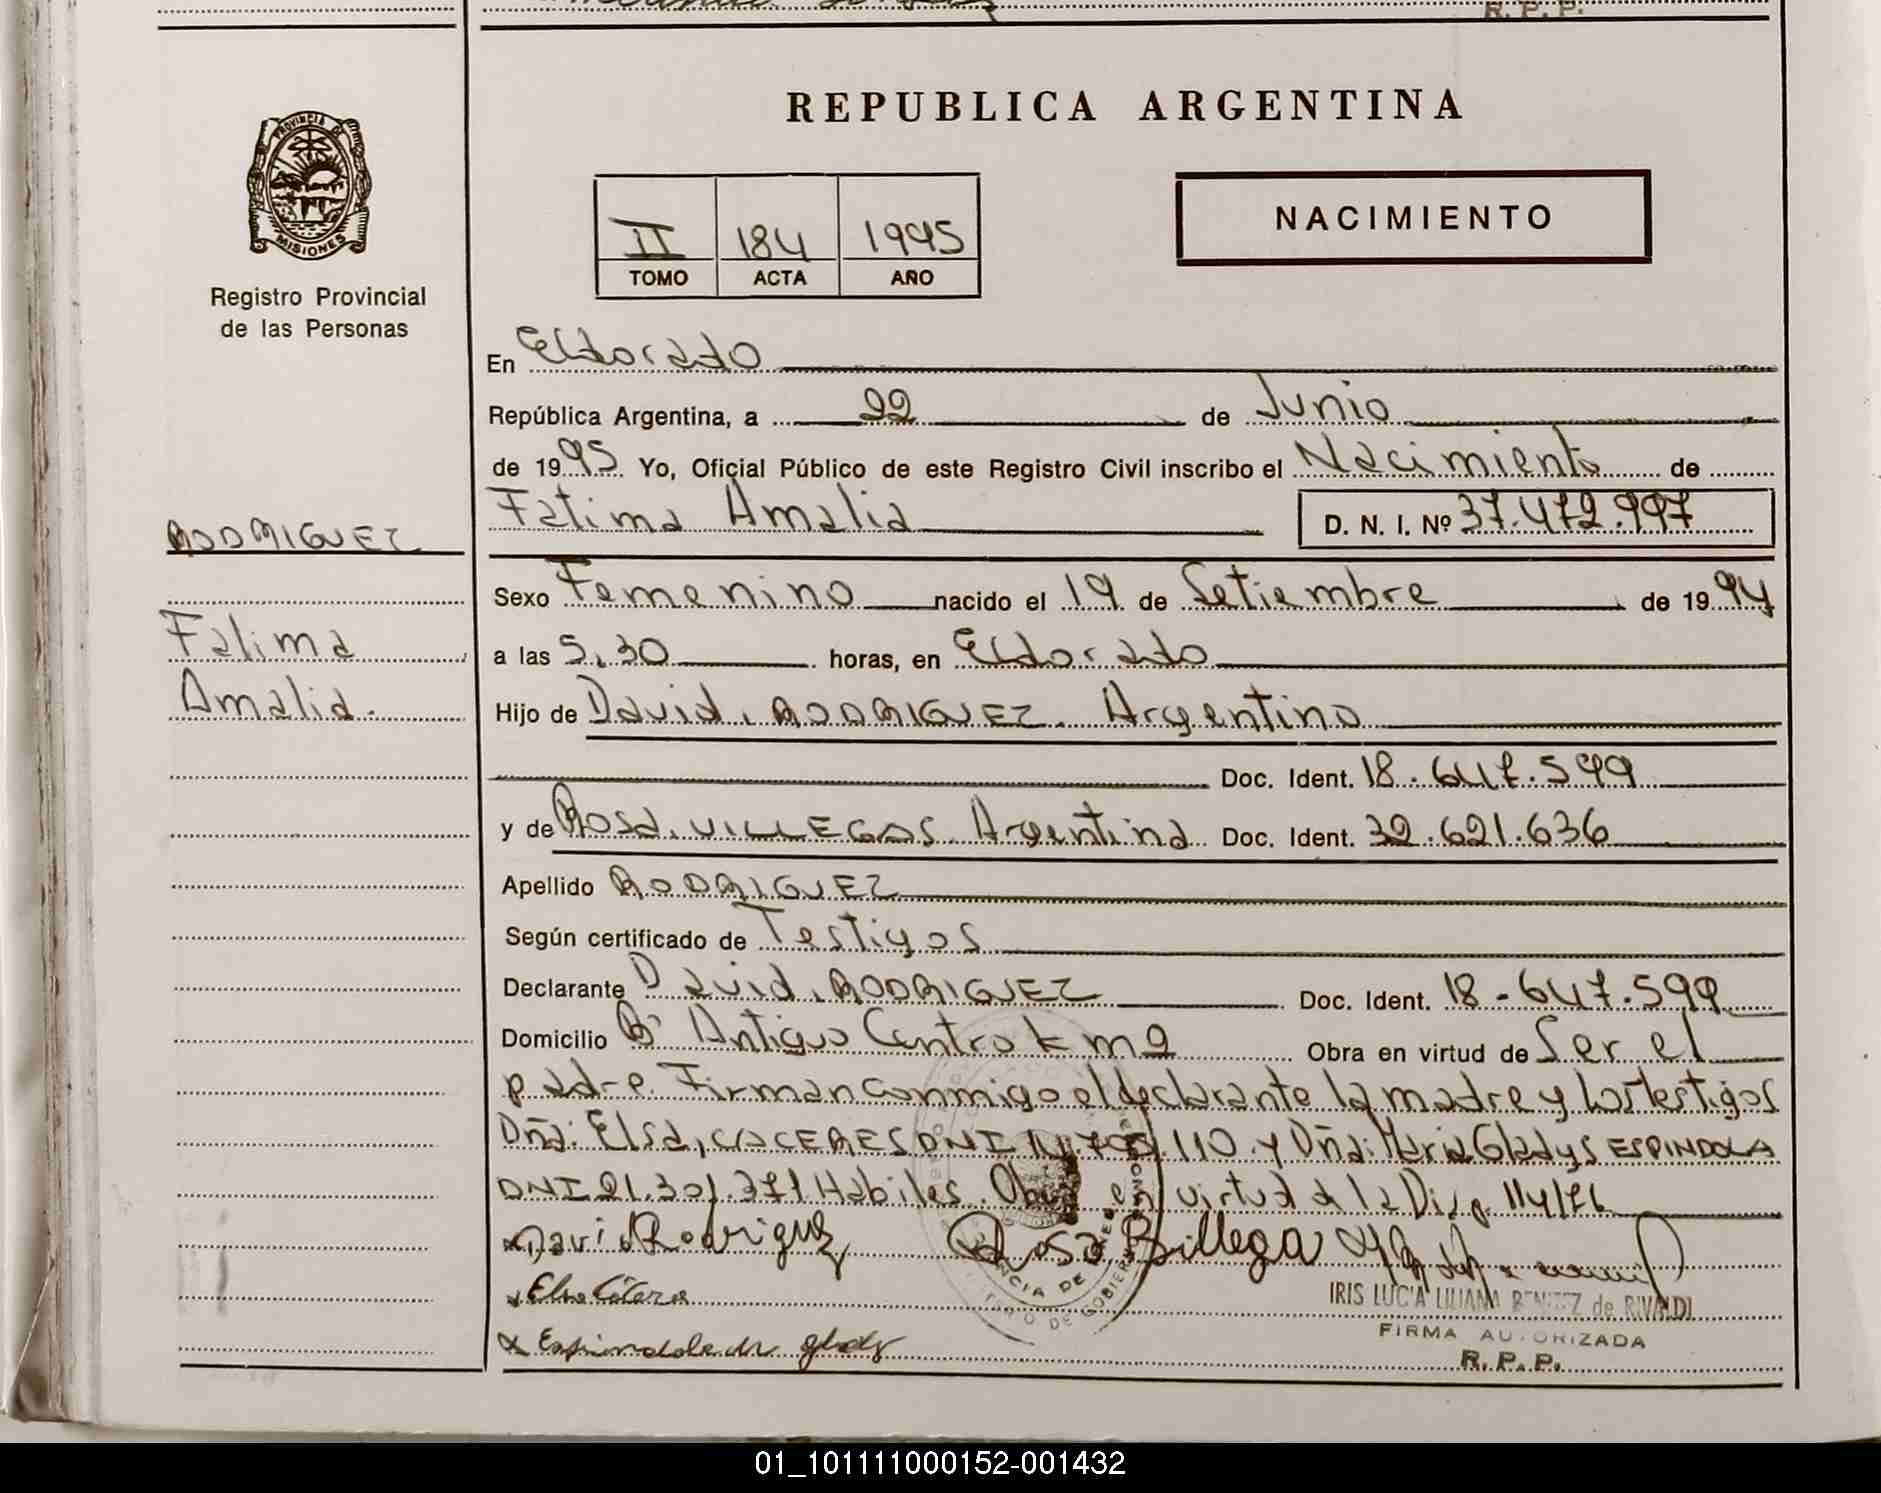 R. P. P.
REPUBLICA ARGENTINA
PROVINCIA DE
MISIONES
Registro Provincial
de las Personas
II 184 1995
TOMO ACTA AÑO
NACIMIENTO
En Eldorado
República Argentina, a 22 de Junio
de 1995 Yo, Oficial Público de este Registro Civil inscribo el Nacimiento de
Fatima Amalia D. N. I. Nº 37.472.997
RODRIGUEZ
Fatima
Amalia.
Sexo Femenino nacido el 19 de Setiembre de 1994
a las 5,30 horas, en Eldorado
Hijo de David, RODRIGUEZ. Argentino
Doc. Ident. 18.647.599
y de Rosa, VILLEGAS. Argentina Doc. Ident. 32.621.636
Apellido RODRIGUEZ
Según certificado de Testigos
Declarante David, RODRIGUEZ Doc. Ident. 18.647.599
Domicilio Bº Antiguo Centro Km 9 Obra en virtud de Ser el
padre. Firman conmigo el declarante la madre y los testigos
Dña: Elsa, CACERES DNI 110 y Dña: Maria Gladys ESPINDOLA
DNI 21.301.371 Habiles. Obra en virtud d la Disp 114/76
David Rodriguez Rosa Billega
Elsa Cácere
Espindola glady
IRIS LUCIA LILIANA BENITEZ de RIVALDI
FIRMA AUTORIZADA
R. P. P.
01_101111000152-001432